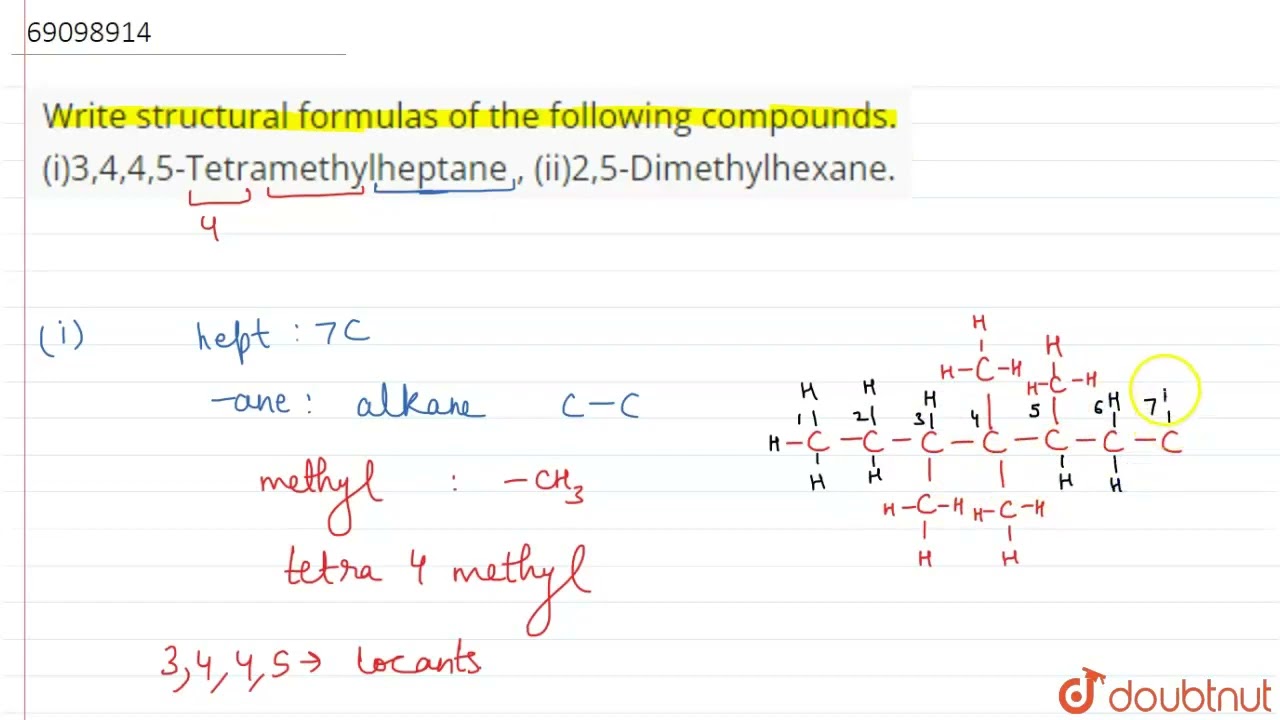 69098914
Write structural formulas of the following compounds.
(i)3,4,4,5-Tetramethylheptane , (ii)2,5-Dimethylhexane.
4
(i) hept : 7C
-ane : alkane C-C
methyl : -CH3
tetra 4 methyl
3,4,4,5→ locants
H
H
H-C-H
H-C-H
H H H H
1 2 3 4 5 6 7
H-C-C-C-C-C-C-C
H H H H
H-C-H H-C-H
H H
doubtnut